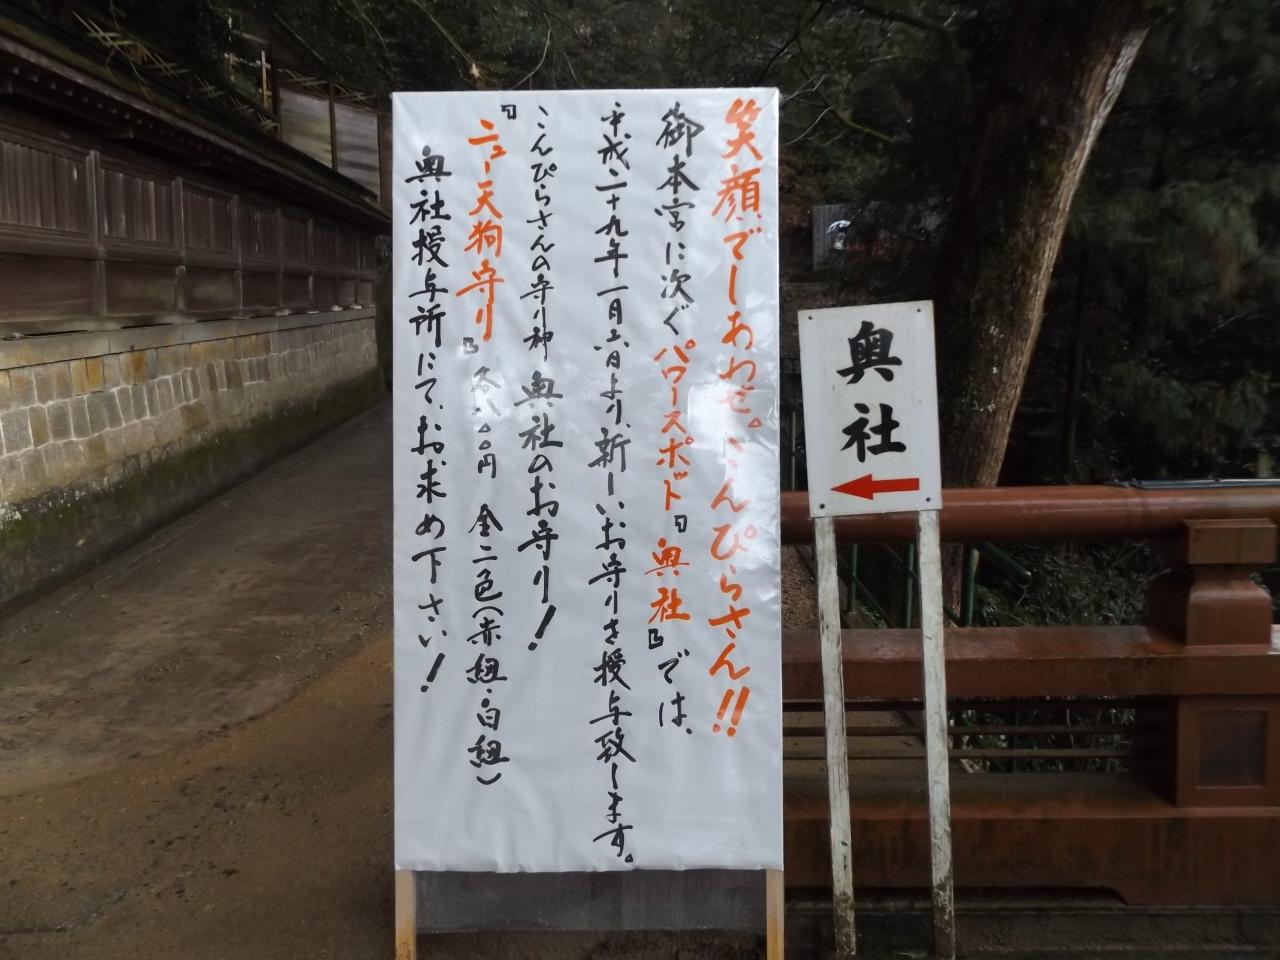 笑顔でしあわせ。こんぴらさん!!
御本宮に次ぐパワースポット『奥社』では、
平成二十九年一月六日より、新しいお守りを授与致します。
こんぴらさんの守り神 奥社のお守り!
『ニュー天狗守り』各八〇〇円 全二色(赤紐・白紐)
奥社授与所にて、お求め下さい!
奥社